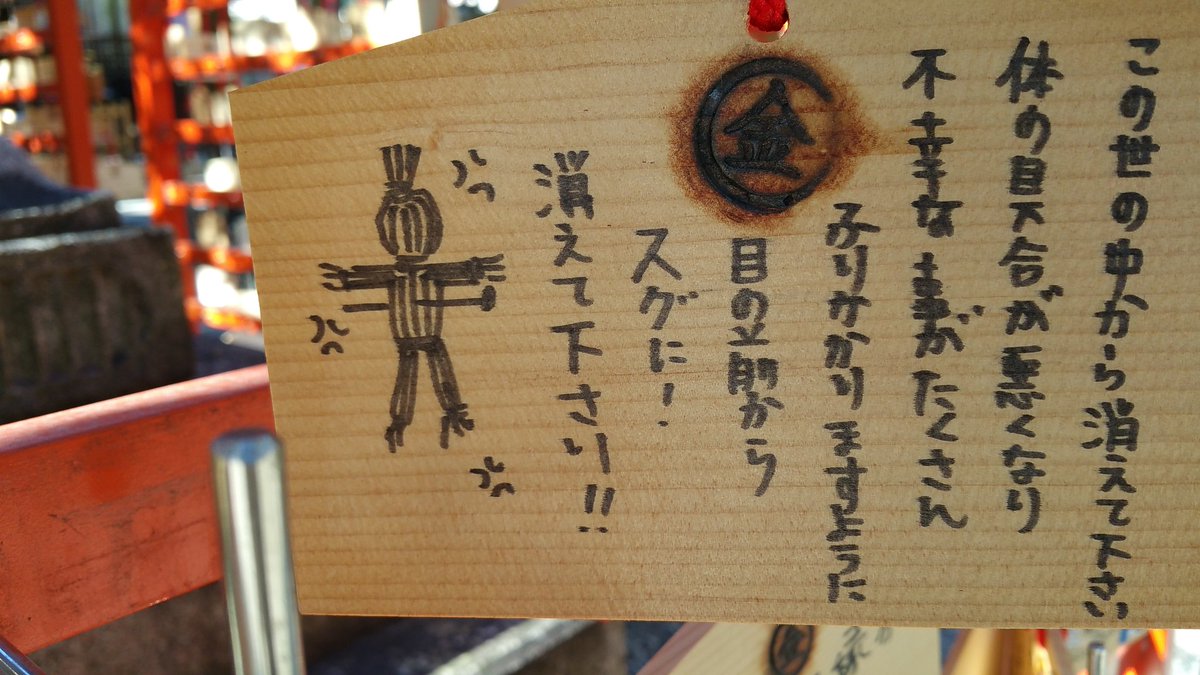 この世の中から消えて下さい
体の具合が悪くなり
不幸な事がたくさん
ふりかかりますように
金
目の前から
スグに!
消えて下さい!!